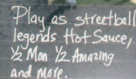 Play as streetball
legends Hot Sauce,
½ Man ½ Amazing
and more.